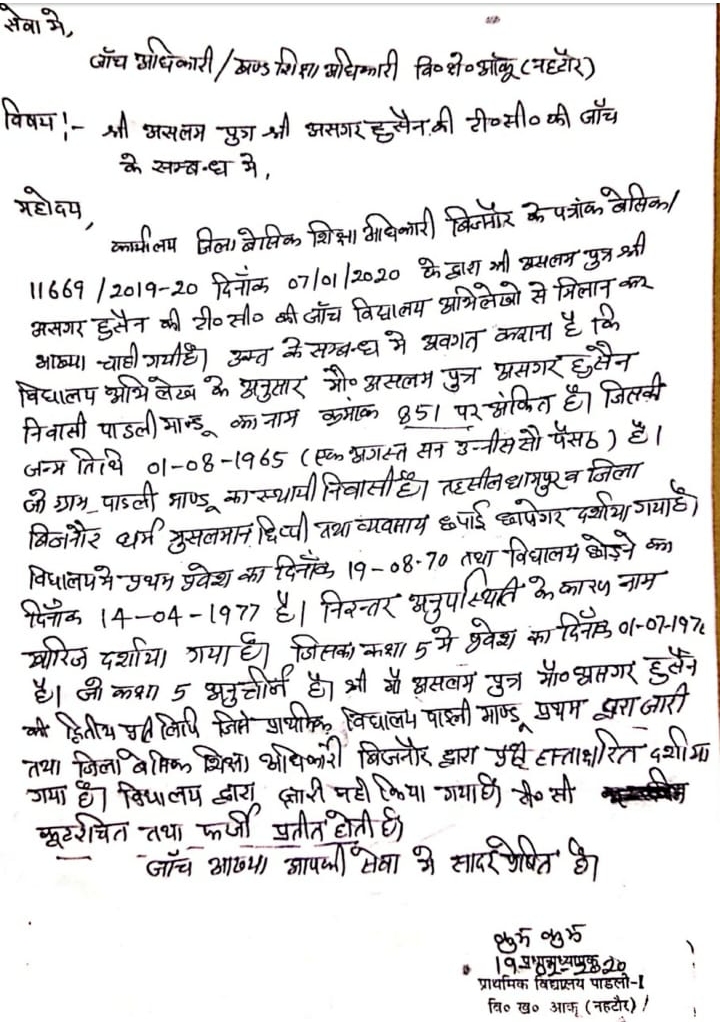 सेवा मे,
जाँच अधिकारी/खण्ड शिक्षा अधिकारी वि०क्षे०आंकू (नहटौर)
विषय:- श्री असलम पुत्र श्री असगर हुसैन की टी०सी० की जाँच
के सम्बन्ध मे,
महोदय,
कार्यालय जिला बेसिक शिक्षा अधिकारी बिजनौर के पत्रांक बेसिक/
11669/2019-20 दिनाँक 07/01/2020 के द्वारा श्री असलम पुत्र श्री
असगर हुसैन की टी०सी० की जाँच विद्यालय अभिलेखो से मिलान कर
आख्या चाही गयी है। उक्त के सम्बन्ध मे अवगत कराना है कि
विद्यालय अभिलेख के अनुसार मौ० असलम पुत्र असगर हुसैन
निवासी पाडली माण्डू का नाम क्रमांक 851 पर अंकित है। जिसकी
जन्म तिथि 01-08-1965 (एक अगस्त सन उन्नीस सौ पैंसठ) है।
जो ग्राम पाडली माण्डू का स्थायी निवासी है। तहसील धामपुर व जिला
बिजनौर धर्म मुसलमान छिप्पी तथा व्यवसाय छपाई छापेगर दर्शाया गया है।
विद्यालय मे प्रथम प्रवेश का दिनाँक 19-08-70 तथा विद्यालय छोड़ने का
दिनाँक 14-04-1977 है। निरन्तर अनुपस्थिति के कारण नाम
खारिज दर्शाया गया है। जिसका कक्षा 5 मे प्रवेश का दिनाँक 01-07-197
है। जो कक्षा 5 अनुत्तीर्ण है। श्री मौ असलम पुत्र मौ० असगर हुसैन
की द्वितीय प्रतिलिपि जिसे प्राथमिक विद्यालय पाडली माण्डू प्रथम द्वारा जारी
तथा जिला बेसिक शिक्षा अधिकारी बिजनौर द्वारा हस्ताक्षरित दर्शाया
गया है। विद्यालय द्वारा जारी नही किया गया है। टी० सी
कूटरचित तथा फर्जी प्रतीत होती है।
जाँच आख्या आपकी सेवा मे सादर प्रेषित है।
प्रधानाध्यापक
प्राथमिक विद्यालय पाडली-I
वि० ख० आकू (नहटौर)